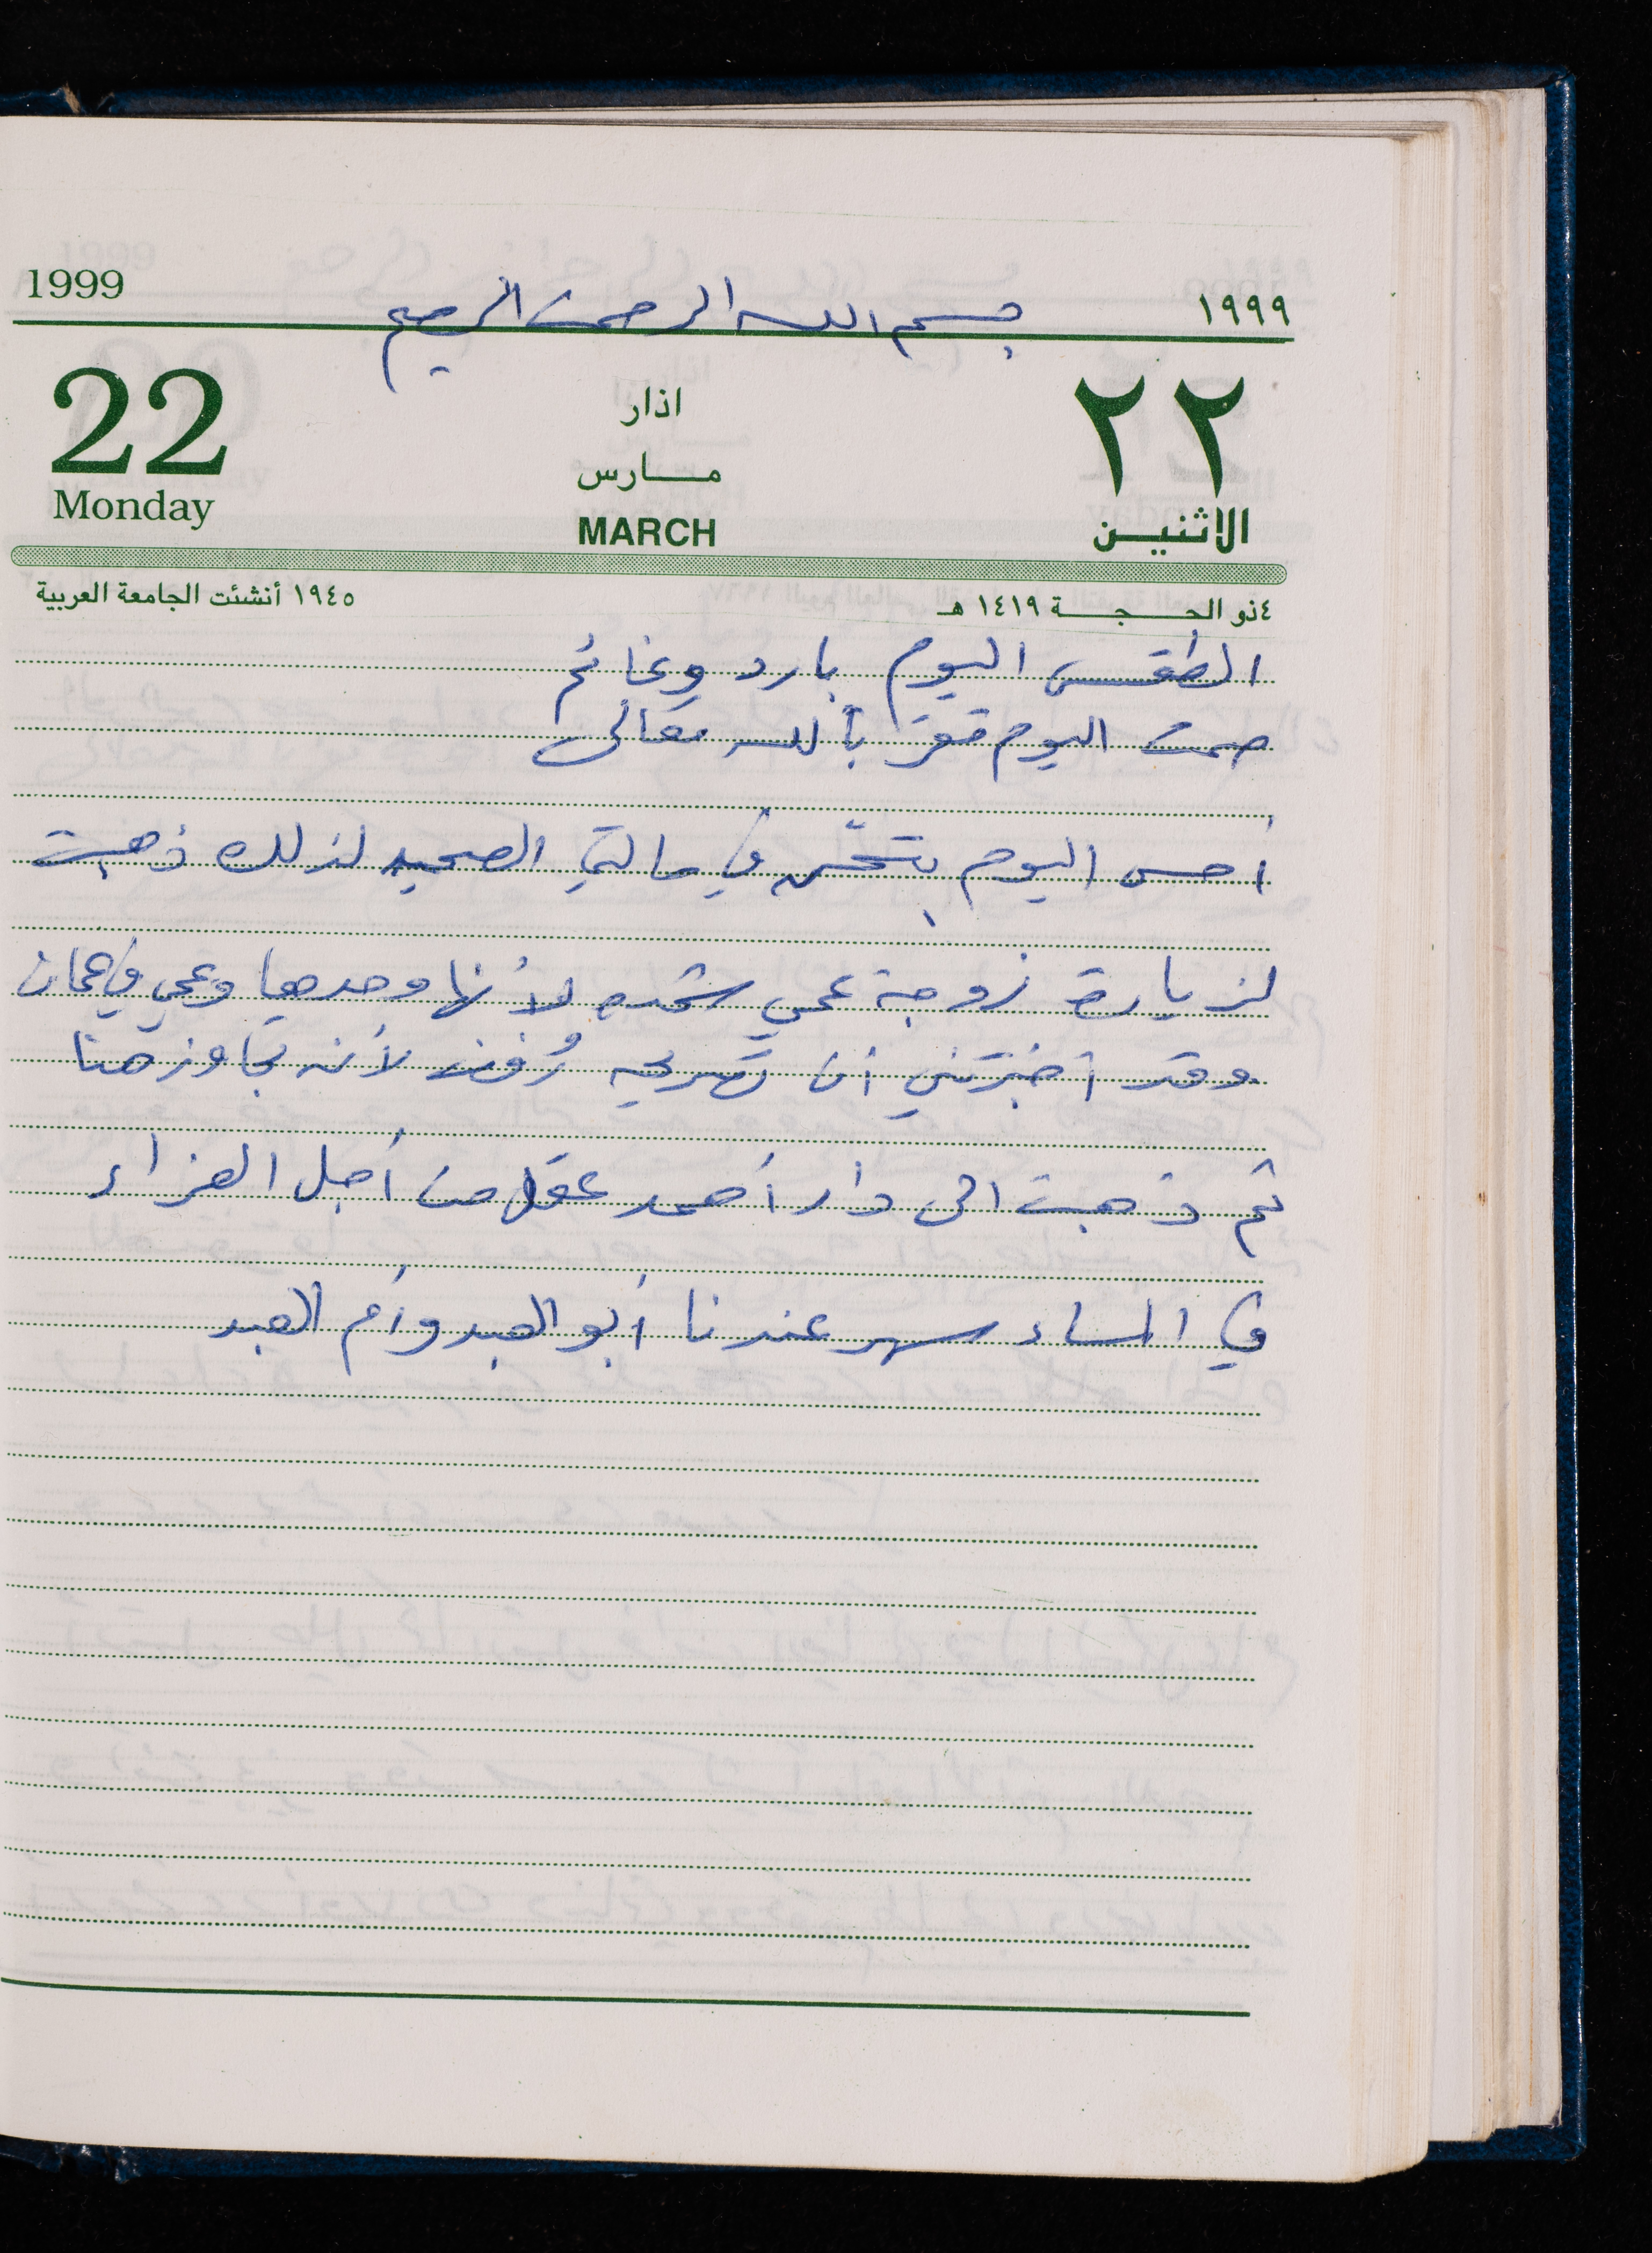 1999
بسم الله الرحمن الرحيم
١٩٩٩
22
اذار
٢٢
مارس
Monday
MARCH
الاثنين
١٩٤٥ أنشئت الجامعة العربية
٤ ذو الحجة ١٤١٩ هـ
الطقس اليوم بارد وغائم
صمت اليوم بالله تعالى
أحس اليوم بتحسّن في حالتي الصحيه لذلك ذهبت
لزيارة زوجة عمي لأنها وحدها وعمي في عمان
وقد أخبرتني أن تصريحه رُفض لأنه تجاوز هنا
ثم ذهبت الى دار أحمد عقل من أجل العزاء
في المساء سهر عندنا أبو العبد وأم العبد